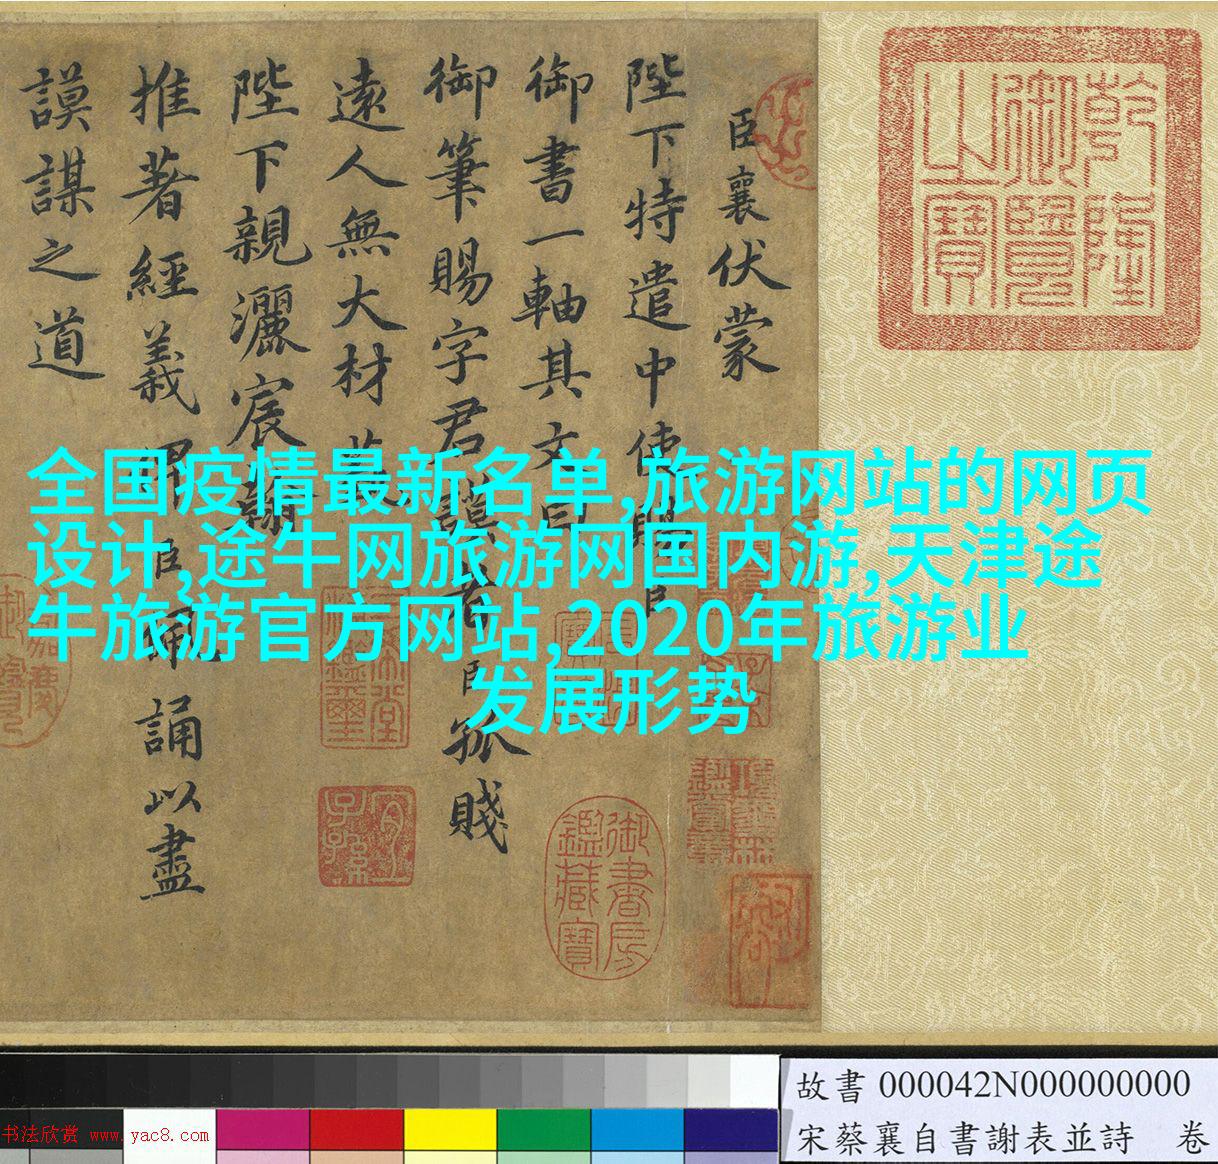 臣襄伏蒙
陛下特遣中使賜臣
御書一軸其文曰
御筆賜字君謨者臣孤賤
遠人無大材
陛下親灑宸翰
推著經義
臣
誦以盡
謨謀之道
乾隆
御覽
之寶
全国疫情最新名单,旅游网站的网页
设计,途牛网旅游网国内游,天津途
牛旅游官方网站,2020年旅游业
发展形势
御書房
鑑藏寶
宜
子孫
故書 000042N000000000
宋蔡襄自書謝表並詩 卷
书法欣赏 www.yac8.com